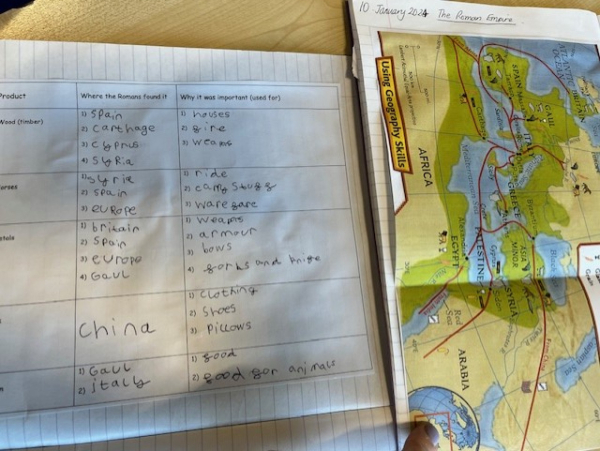 10 January 2024 The Roman Empire
Product
Where the Romans found it
Why it was important (used for)
Wood (timber)
1) Spain
2) Carthage
3) Cyprus
4) Syria
1) houses
2) fire
3) weapns
1) Syria
2) Spain
3) europe
1) ride
2) camy stuff
3) warefare
1) britain
2) Spain
3) europe
4) Gaul
1) weapns
2) armour
3) bows
4) forks and knife
China
1) Clothing
2) Shoes
3) Pillows
1) Gaul
2) itally
1) food
2) food for animals
Using Geography Skills
SPAIN
GAUL
ITALY
GREECE
AFRICA
EGYPT
PALESTINE
ASIA MINOR
SYRIA
Red Sea
ARABIA